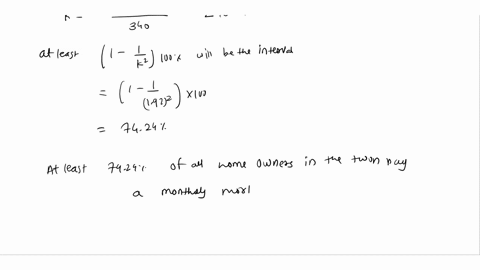 340
at least (1 - 1/K²) 100% will be the interval
= (1 - 1/(1.97)²) × 100
= 74.24%
At least 74.24% of all home owners in the town pay
a monthly morl